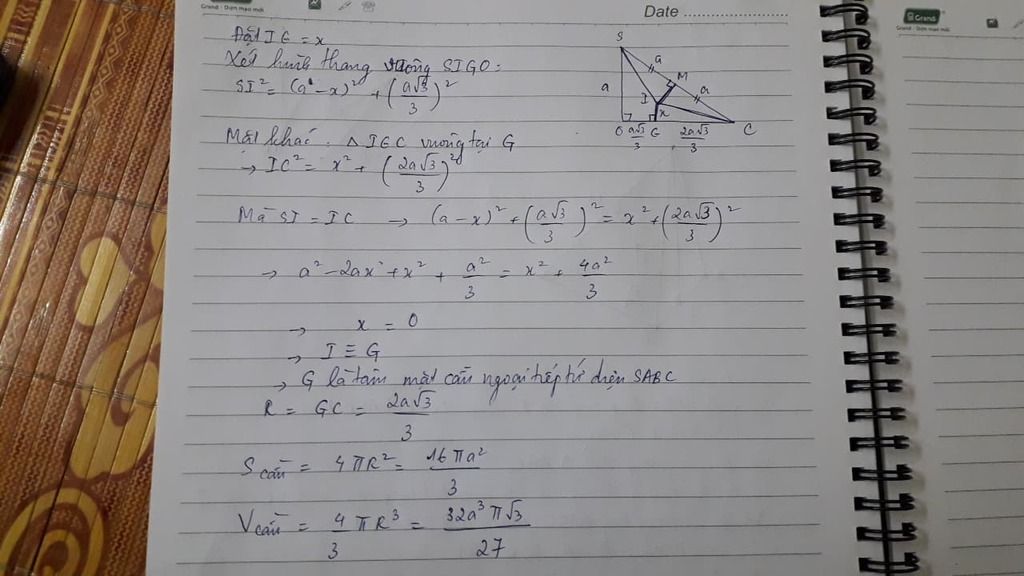 Grand
Grand - Điểm mười mới
Date
Đặt IG = x
Xét hình thang vuông SIGO:
SI² = (a - x)² + (a√3/3)²
Mặt khác: △ IGC vuông tại G
→ IC² = x² + (2a√3/3)²
Mà SI = IC → (a - x)² + (a√3/3)² = x² + (2a√3/3)²
→ a² - 2ax + x² + a²/3 = x² + 4a²/3
→ x = 0
→ I ≡ G
→ G là tâm mặt cầu ngoại tiếp tứ diện SABC
R = GC = 2a√3/3
S cầu = 4πR² = 16πa²/3
V cầu = 4/3 πR³ = 32a³π√3/27
S
a
M
a
I
a
x
O a√3/3 G 2a√3/3 C
Grand